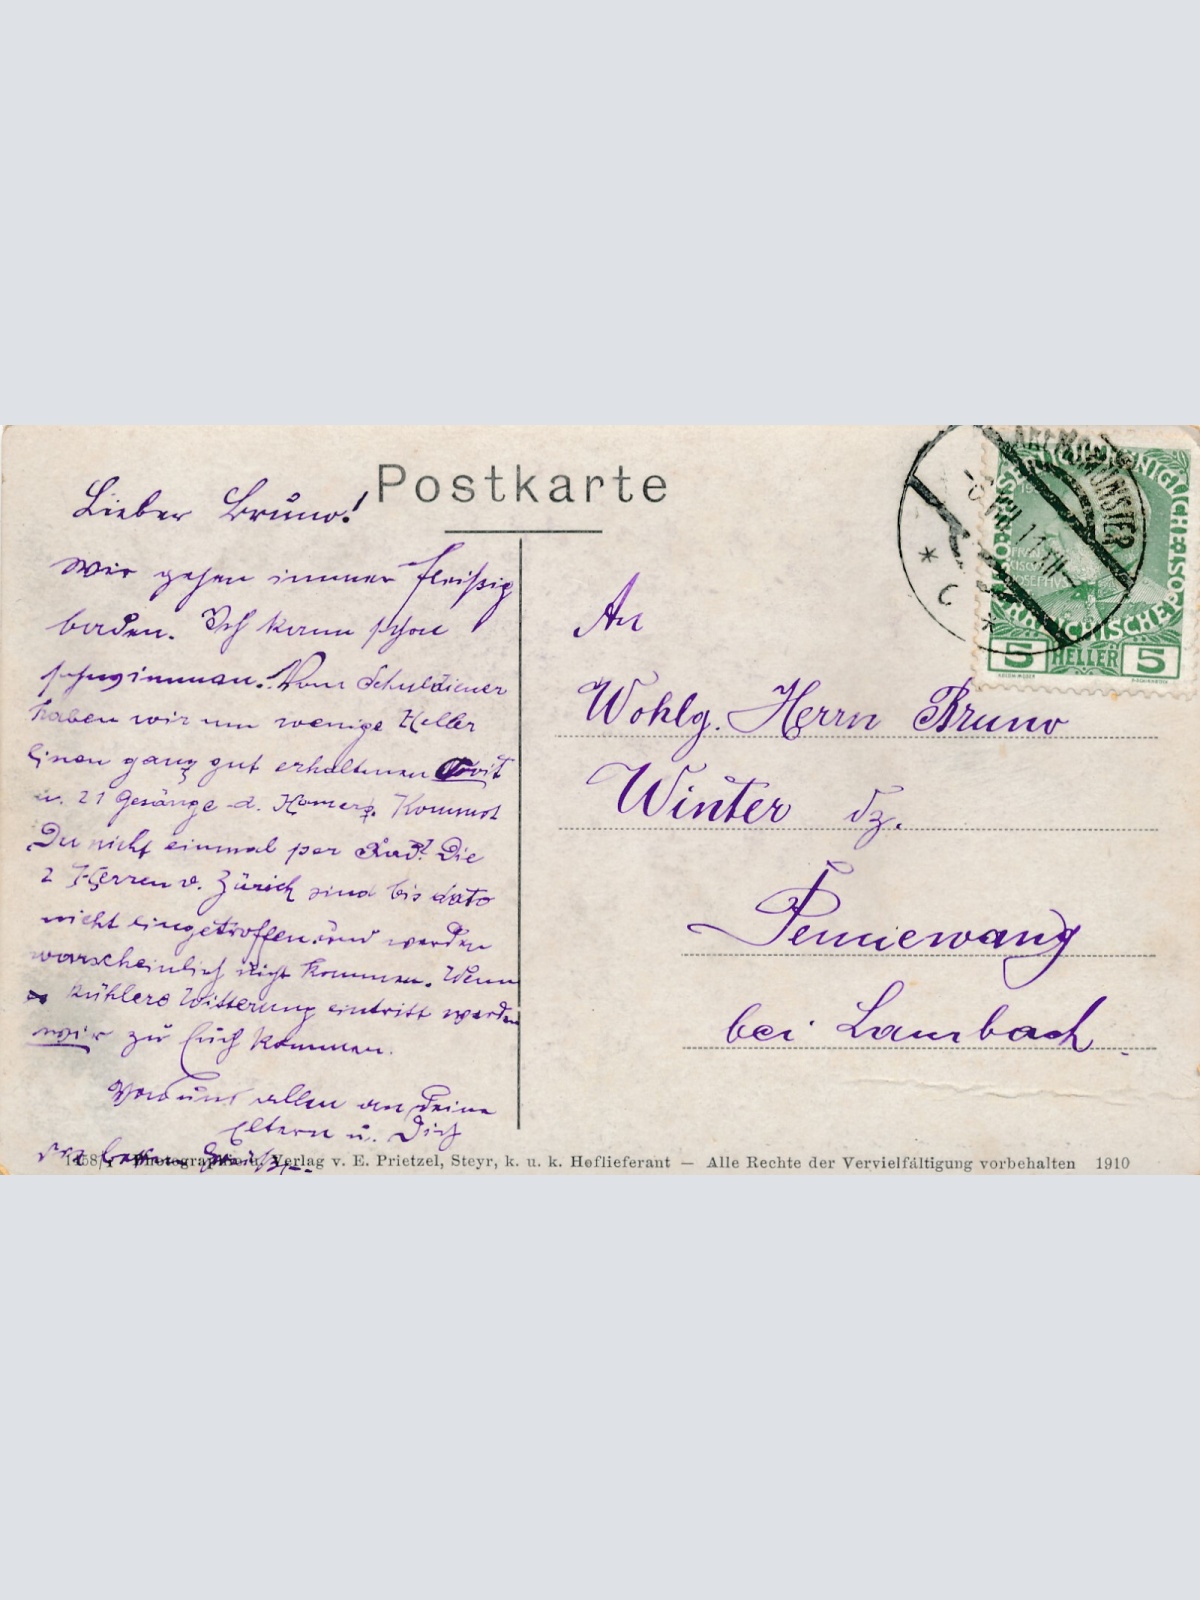 Postkarte
Lieber Bruno!
Wir gehen immer fleißig
baden. Ich kann schon
schwimmen. Vom Schuldiener
haben wir um wenige Heller
einen ganz gut erhaltenen Ovit
u. 21 Gesänge d. Homers. Kommst
Du nicht einmal per Rad? Die
2 Herren v. Zürich sind bis dato
nicht eingetroffen und werden
warscheinlich nicht kommen. Wenn
kühlere Witterung eintritt werden
wir zu Euch kommen.
Von uns allen an Deine
Eltern u. Dich
die besten Grüße.
An
Wohlg. Herrn Bruno
Winter dz.
Pennewang
bei Lambach.
KREMSMÜNSTER
5 HELLER 5
Photographie u. Verlag v. E. Prietzel, Steyr, k. u. k. Hoflieferant — Alle Rechte der Vervielfältigung vorbehalten 1910